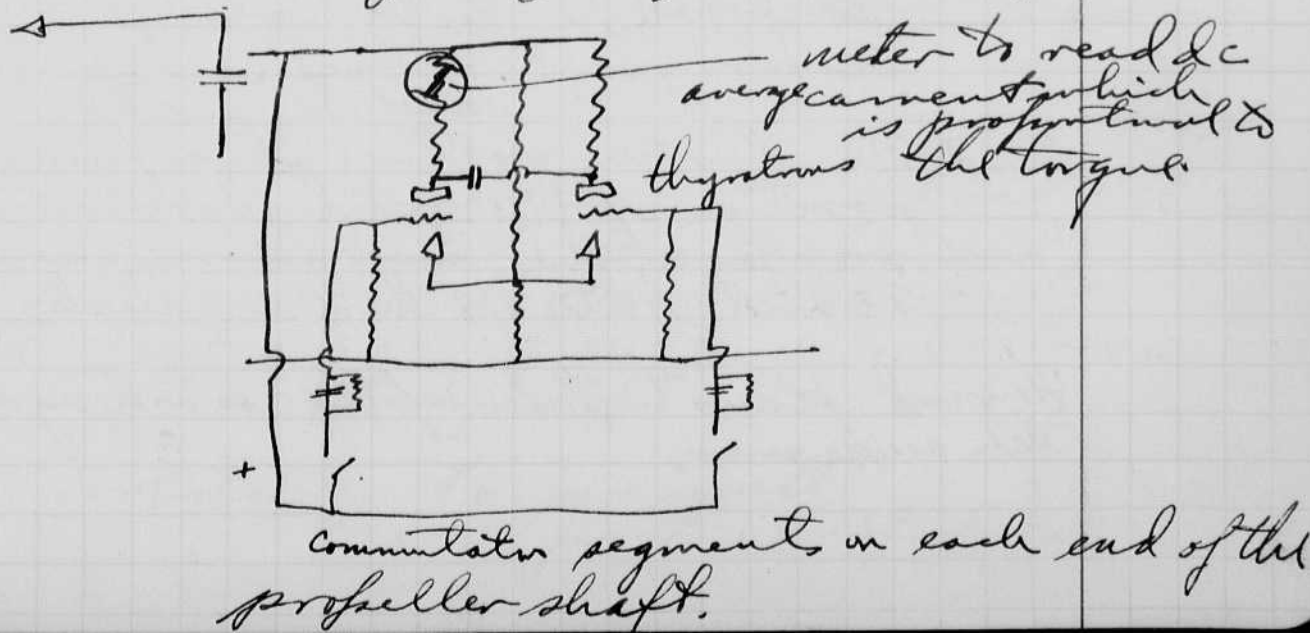 meter to read dc
averge current which
is proportional to
thyratrons the torque.
+
commutator segments on each end of the
propeller shaft.